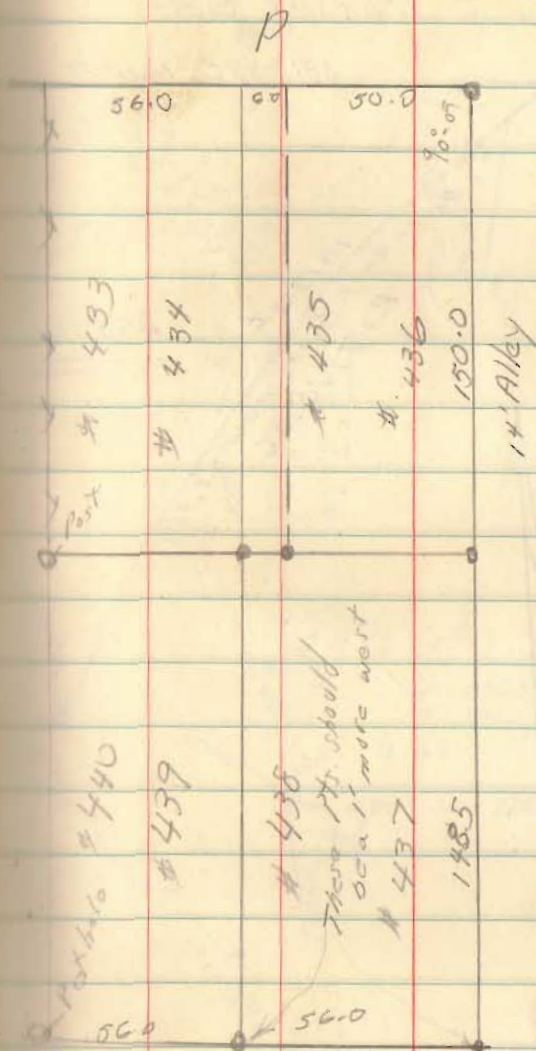 P
56.0
6.0
50.0
90°-05
# 433
# 434
# 435
# 436
150.0
14' Alley
Post
Posthole
# 440
# 439
# 438
These Pts. should
be a 1' more west
# 437
148.5
56.0
56.0